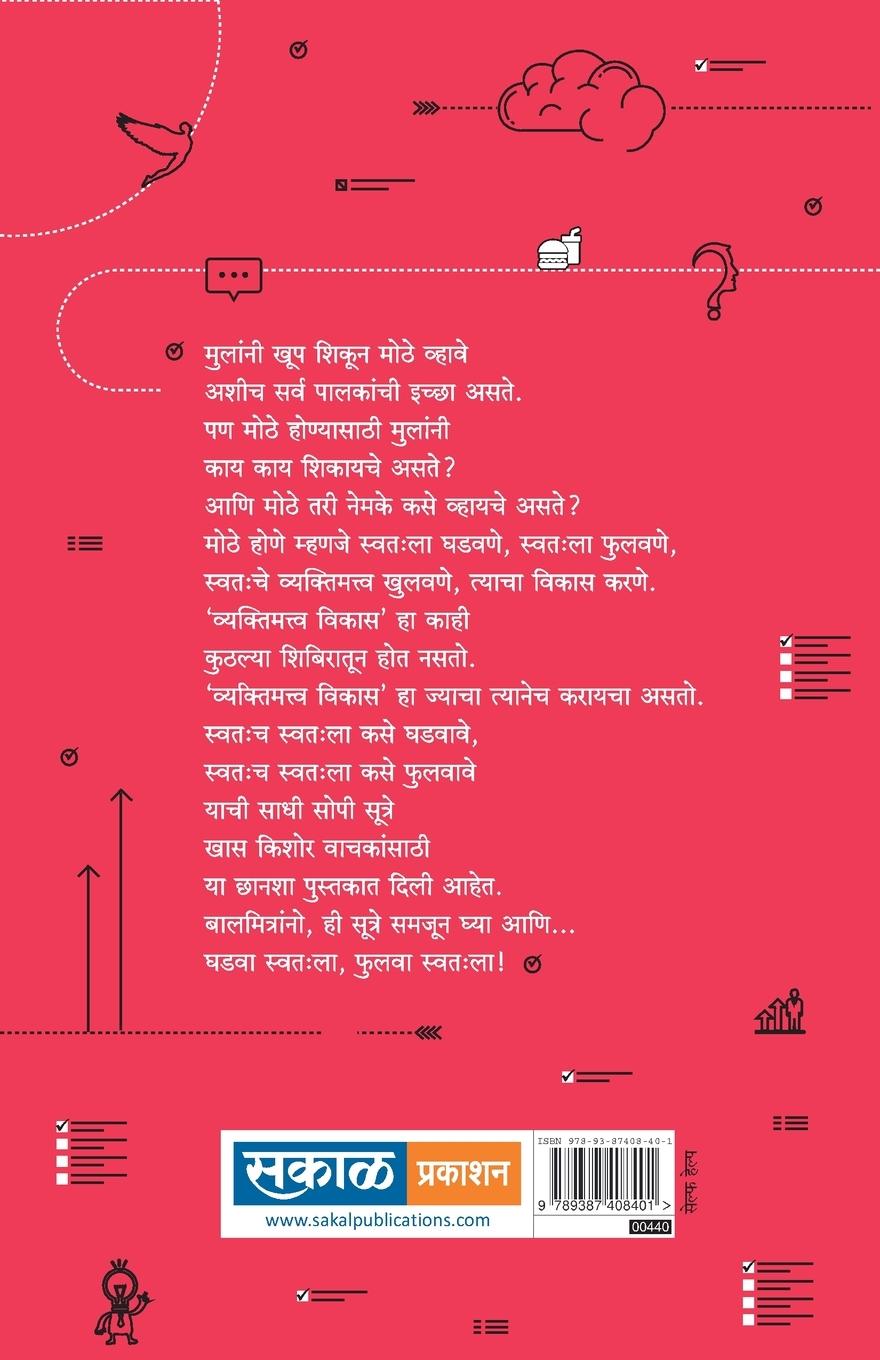 मुलांनी खूप शिकून मोठे व्हावे
अशीच सर्व पालकांची इच्छा असते.
पण मोठे होण्यासाठी मुलांनी
काय काय शिकायचे असते?
आणि मोठे तरी नेमके कसे व्हायचे असते?
मोठे होणे म्हणजे स्वतःला घडवणे, स्वतःला फुलवणे,
स्वतःचे व्यक्तिमत्त्व खुलवणे, त्याचा विकास करणे.
‘व्यक्तिमत्त्व विकास’ हा काही
कुठल्या शिबिरातून होत नसतो.
‘व्यक्तिमत्त्व विकास’ हा ज्याचा त्यानेच करायचा असतो.
स्वतःच स्वतःला कसे घडवावे,
स्वतःच स्वतःला कसे फुलवावे
याची साधी सोपी सूत्रे
खास किशोर वाचकांसाठी
या छानशा पुस्तकात दिली आहेत.
बालमित्रांनो, ही सूत्रे समजून घ्या आणि...
घडवा स्वतःला, फुलवा स्वतःला!
सकाळ प्रकाशन
www.sakalpublications.com
ISBN 978-93-87408-40-1
9 789387 408401 >
00440
सेल्फ हेल्प